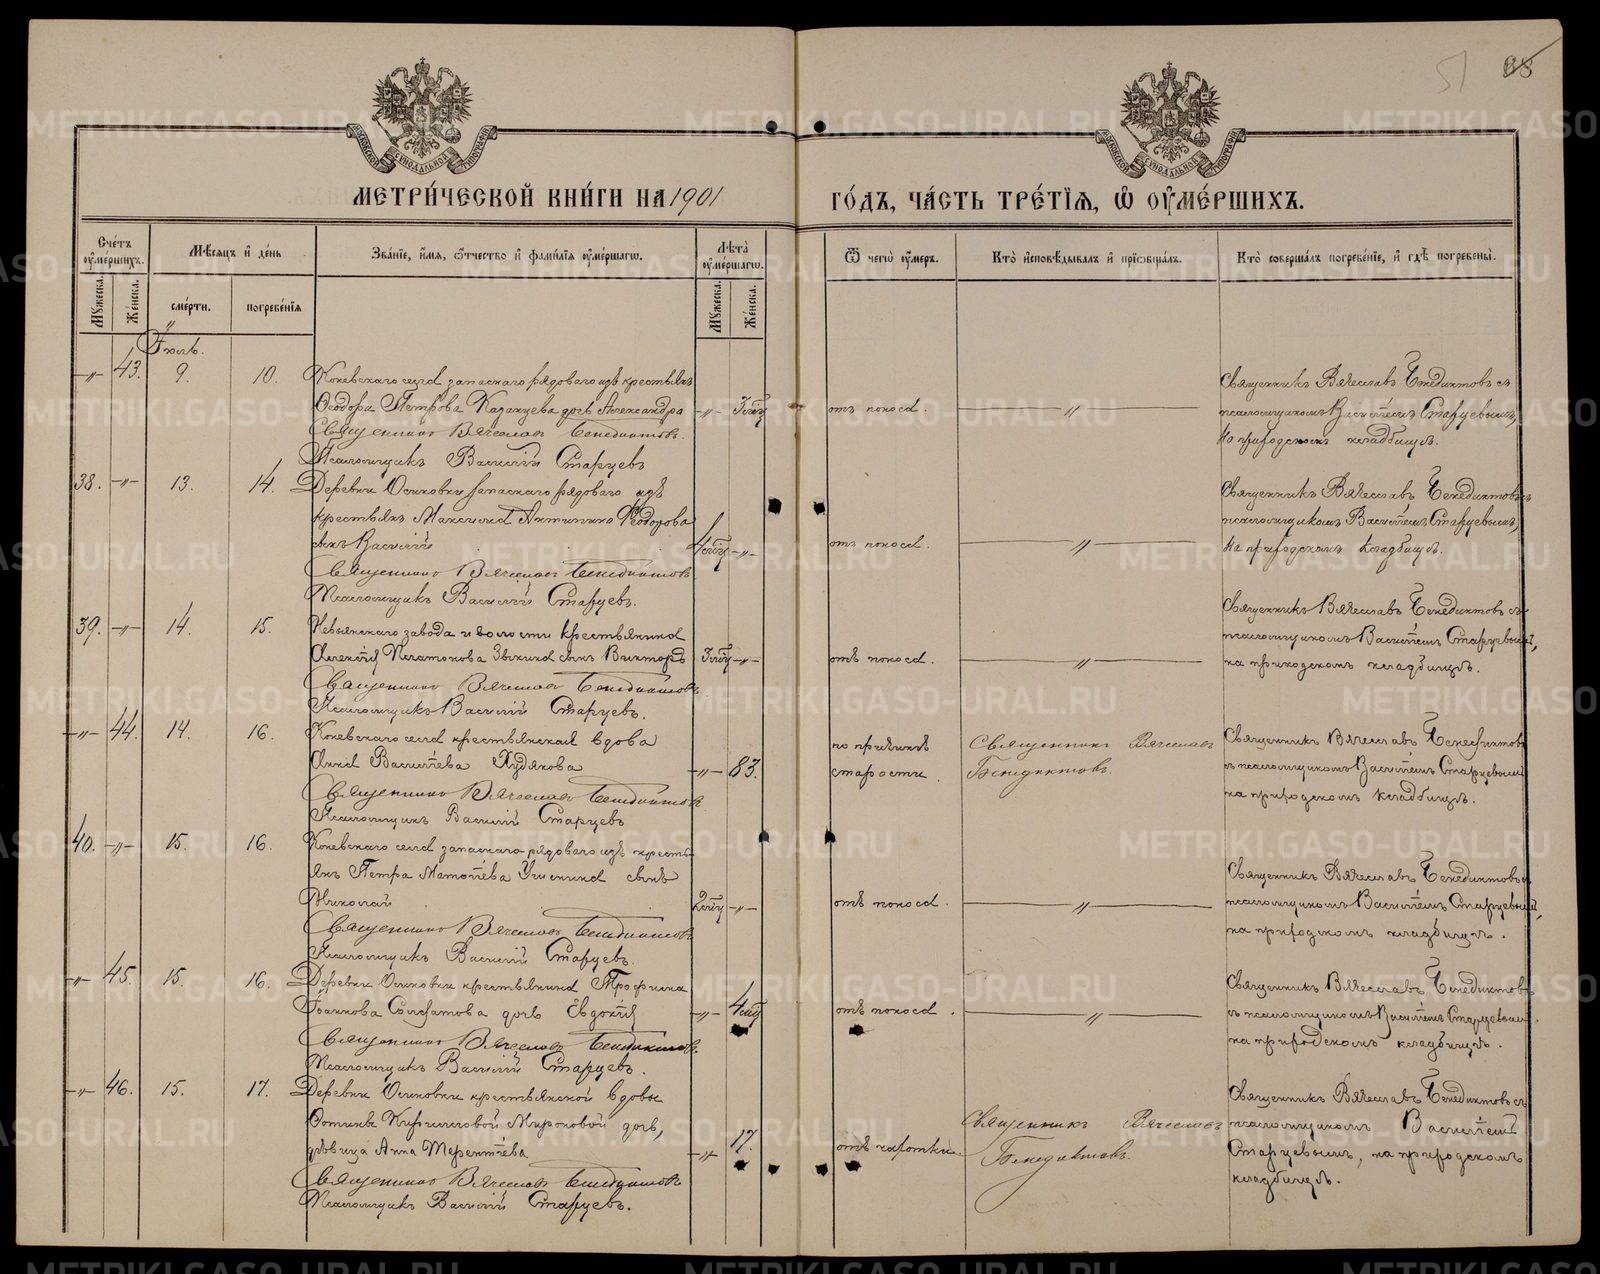 51 88
МОСКОВСКОЙ СУНОДАЛЬНОЙ ТИПОГРАФІИ
МОСКОВСКОЙ СУНОДАЛЬНОЙ ТИПОГРАФІИ
МЕТРИ́ЧЕСКОЙ КНИ́ГИ НА 1901
ГО́ДЪ, ЧА́СТЬ ТРЕ́ТІѦ, Ѡ҆ ОУ҆МЕ́РШИХЪ.
Сче́тъ оу҆ме́ршихъ.
Му́жеска.
Же́нска.
Мѣ́сяцъ и҆ де́нь
сме́рти.
погребе́нія
Зва́ніе, и҆́мя, ѻ҆́тчество и҆ фами́лія оу҆ме́ршагѡ.
Лѣ́та оу҆ме́ршагѡ.
Му́жеска.
Же́нска.
Ѿ чегѡ̀ оу҆́меръ.
Кто̀ и҆сповѣ́дывалъ и҆ прїѡбща́лъ.
Кто̀ соверша́лъ погребе́ніе, и҆ гдѣ̀ погребены̀.
Іюль.
-"- 43. 9. 10. Коневскаго села запаснаго рядоваго изъ крестьянъ
Ѳеодора Петрова Казанцева дочь Александра -"-
Священникъ Вячеславъ Бенедиктовъ.
Псаломщикъ Василій Старцевъ
отъ поноса. "
Священникъ Вячеславъ Бенедиктовъ съ
псаломщикомъ Василіемъ Старцевымъ,
на приходскомъ кладбищѣ.
38. -"- 13. 14. Деревни Осиновки запаснаго рядоваго изъ
крестьянъ Максима Антипина Ѳеодорова
сынъ Василій -"-
Священникъ Вячеславъ Бенедиктовъ
Псаломщикъ Василій Старцевъ.
отъ поноса. "
Священникъ Вячеславъ Бенедиктовъ съ
псаломщикомъ Василіемъ Старцевымъ,
на приходскомъ кладбищѣ.
39. -"- 14. 15. Невьянскаго завода и волости крестьянина
Алексѣя Платонова сынъ Викторъ -"-
Священникъ Вячеславъ Бенедиктовъ.
Псаломщикъ Василій Старцевъ.
отъ поноса. "
Священникъ Вячеславъ Бенедиктовъ съ
псаломщикомъ Василіемъ Старцевымъ,
на приходскомъ кладбищѣ.
-"- 44. 14. 16. Коневскаго села крестьянская вдова
Анна Васильева Худякова -"- 83.
Священникъ Вячеславъ Бенедиктовъ
Псаломщикъ Василій Старцевъ
по причинѣ
старости.
Священникъ Вячеславъ
Бенедиктовъ.
Священникъ Вячеславъ Бенедиктовъ
съ псаломщикомъ Василіемъ Старцевымъ
на приходскомъ кладбищѣ.
40. -"- 15. 16. Коневскаго села запаснаго рядоваго изъ кресть-
янъ Петра Матѳѣева сынъ
Николай -"-
Священникъ Вячеславъ Бенедиктовъ
Псаломщикъ Василій Старцевъ.
отъ поноса. "
Священникъ Вячеславъ Бенедиктовъ съ
псаломщикомъ Василіемъ Старцевымъ,
на приходскомъ кладбищѣ.
-"- 45. 15. 16. Деревни Осиновки крестьянина Трофима
Іоаннова Солдатова дочь Евдокія -"-
Священникъ Вячеславъ Бенедиктовъ.
Псаломщикъ Василій Старцевъ.
отъ поноса. "
Священникъ Вячеславъ Бенедиктовъ
съ псаломщикомъ Василіемъ Старцевымъ
на приходскомъ кладбищѣ.
-"- 46. 15. 17. Деревни Осиновки крестьянской вдовы
Фотины Кирилловой Мироновой дочь,
дѣвица Анна Терентьева -"- 17.
Священникъ Вячеславъ Бенедиктовъ
Псаломщикъ Василій Старцевъ.
отъ чахотки.
Священникъ Вячеславъ
Бенедиктовъ.
Священникъ Вячеславъ Бенедиктовъ съ
псаломщикомъ Василіемъ
Старцевымъ, на приходскомъ
кладбищѣ.
METRIKI.GASO-URAL.RU